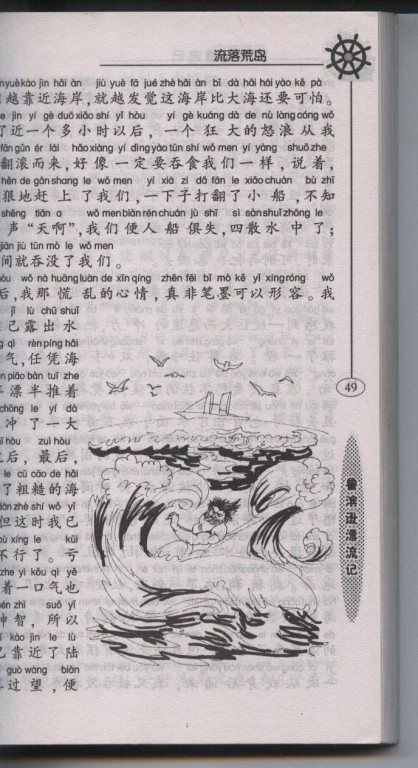 流落荒岛
yuè kào jìn hǎi àn jiù yuè fā jué zhè hǎi àn bǐ dà hǎi hái yào kě pà
越靠近海岸,就越发觉这海岸比大海还要可怕。
le jìn yí gè duō xiǎo shí yǐ hòu yí gè kuáng dà de nù làng cóng wǒ
了近一个多小时以后,一个狂大的怒浪从我
fān gǔn ér lái hǎo xiàng yí dìng yào tūn shí wǒ men yí yàng shuō zhe
翻滚而来,好像一定要吞食我们一样,说着,
hěn de gǎn shang le wǒ men yí xià zi dǎ fān le xiǎo chuán bù zhī
狠地赶上了我们,一下子打翻了小船,不知
shēng tiān a wǒ men biàn rén chuán jù shī sì sàn shuǐ zhōng le
声“天啊”,我们便人船俱失,四散水中了;
jiān jiù tūn mò le wǒ men
间就吞没了我们。
hòu wǒ nà huāng luàn de xīn qíng zhēn fēi bǐ mò kě yǐ xíng róng wǒ
后,我那慌乱的心情,真非笔墨可以形容。我
jǐ lù chū shuǐ
己露出水
qì rèn píng hǎi
气,任凭海
piāo bàn tuī zhe
漂半推着
chōng le yí dà
冲了一大
hòu zuì hòu
后,最后,
le cū cāo de hǎi
了粗糙的海
dàn zhè shí wǒ yǐ
但这时我已
bù xíng le kuī
不行了。亏
zhe yì kǒu qì yě
着一口气也
shén zhì suǒ yǐ
神智,所以
kào jìn le lù
靠近了陆
guò wàng biàn
过望,便
49
鲁滨逊漂流记